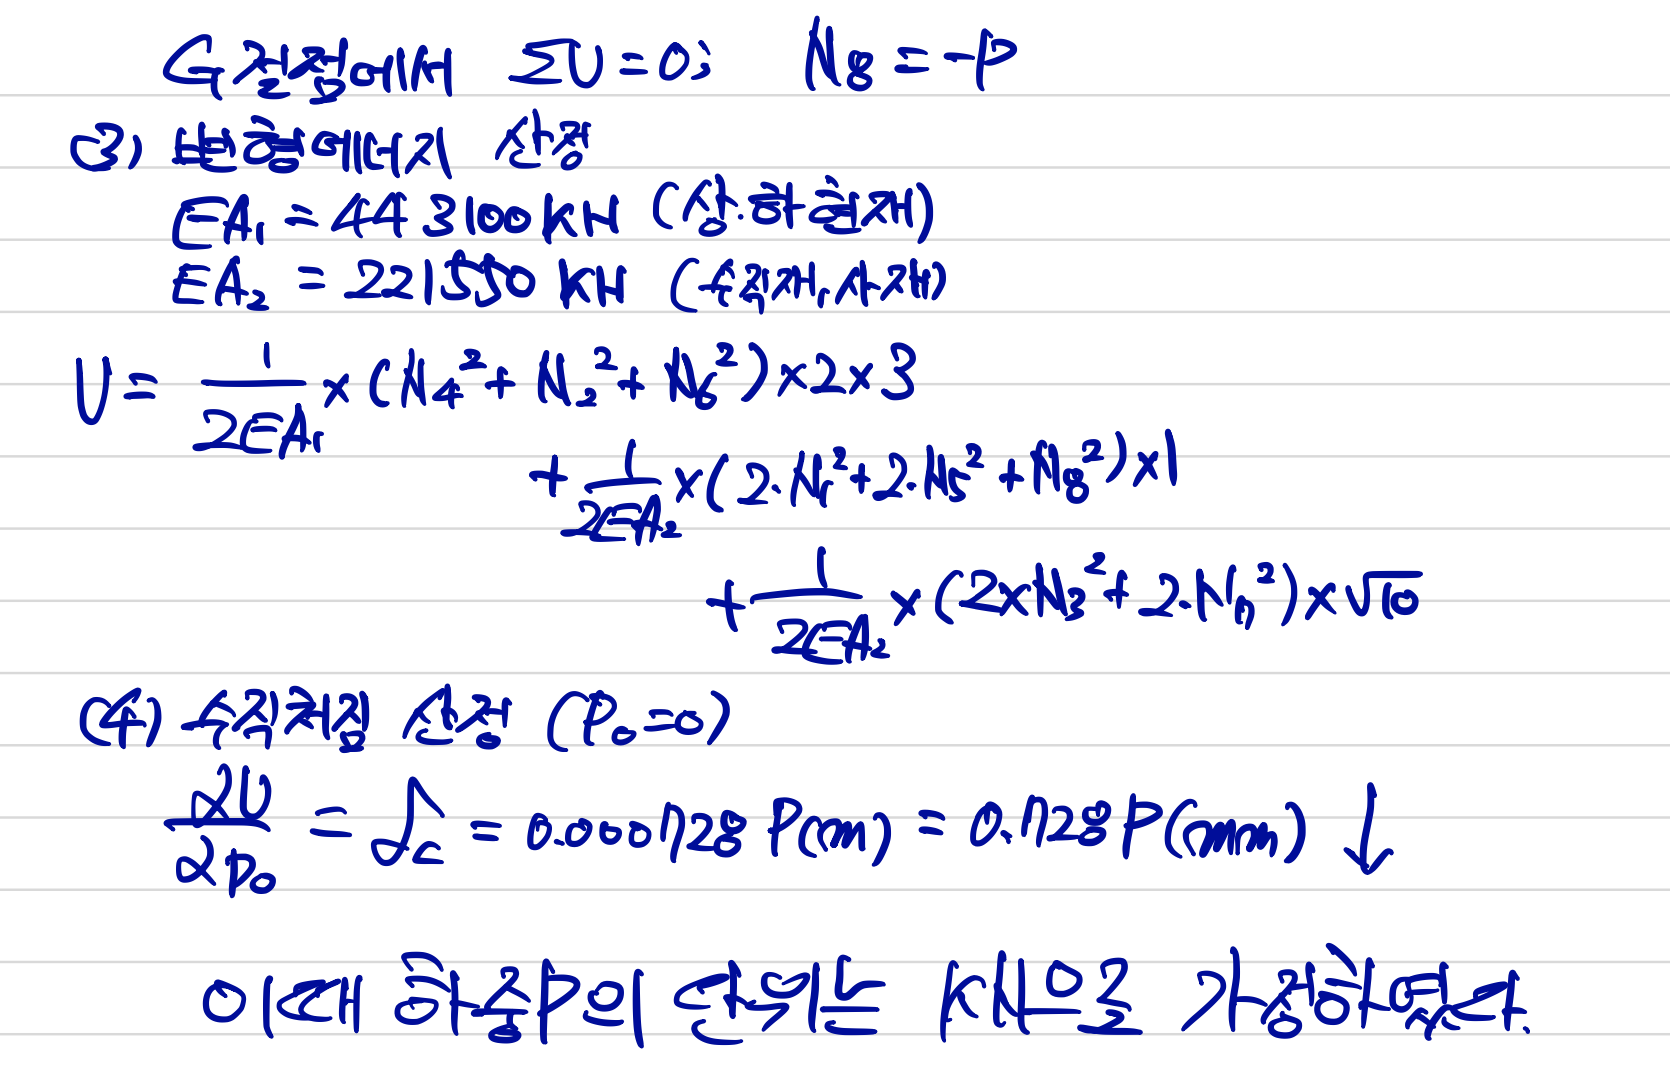 G절점에서 ΣV=0; N₈ = -P
(3) 변형에너지 산정
EA₁ = 443100KN (상.하현재)
EA₂ = 221550 KN (수직재, 사재)
U = 1/(2EA₁) × (N₄² + N₂² + N₆²) × 2 × 3
+ 1/(2EA₂) × (2·N₁² + 2·N₅² + N₈²) × 1
+ 1/(2EA₂) × (2×N₃² + 2·N₇²) × √10
(4) 수직처짐 산정 (P₀=0)
∂U/∂P₀ = δc = 0.0001728 P(m) = 0.1728 P(mm) ↓
이때 하중P의 단위는 KN으로 가정하였다.